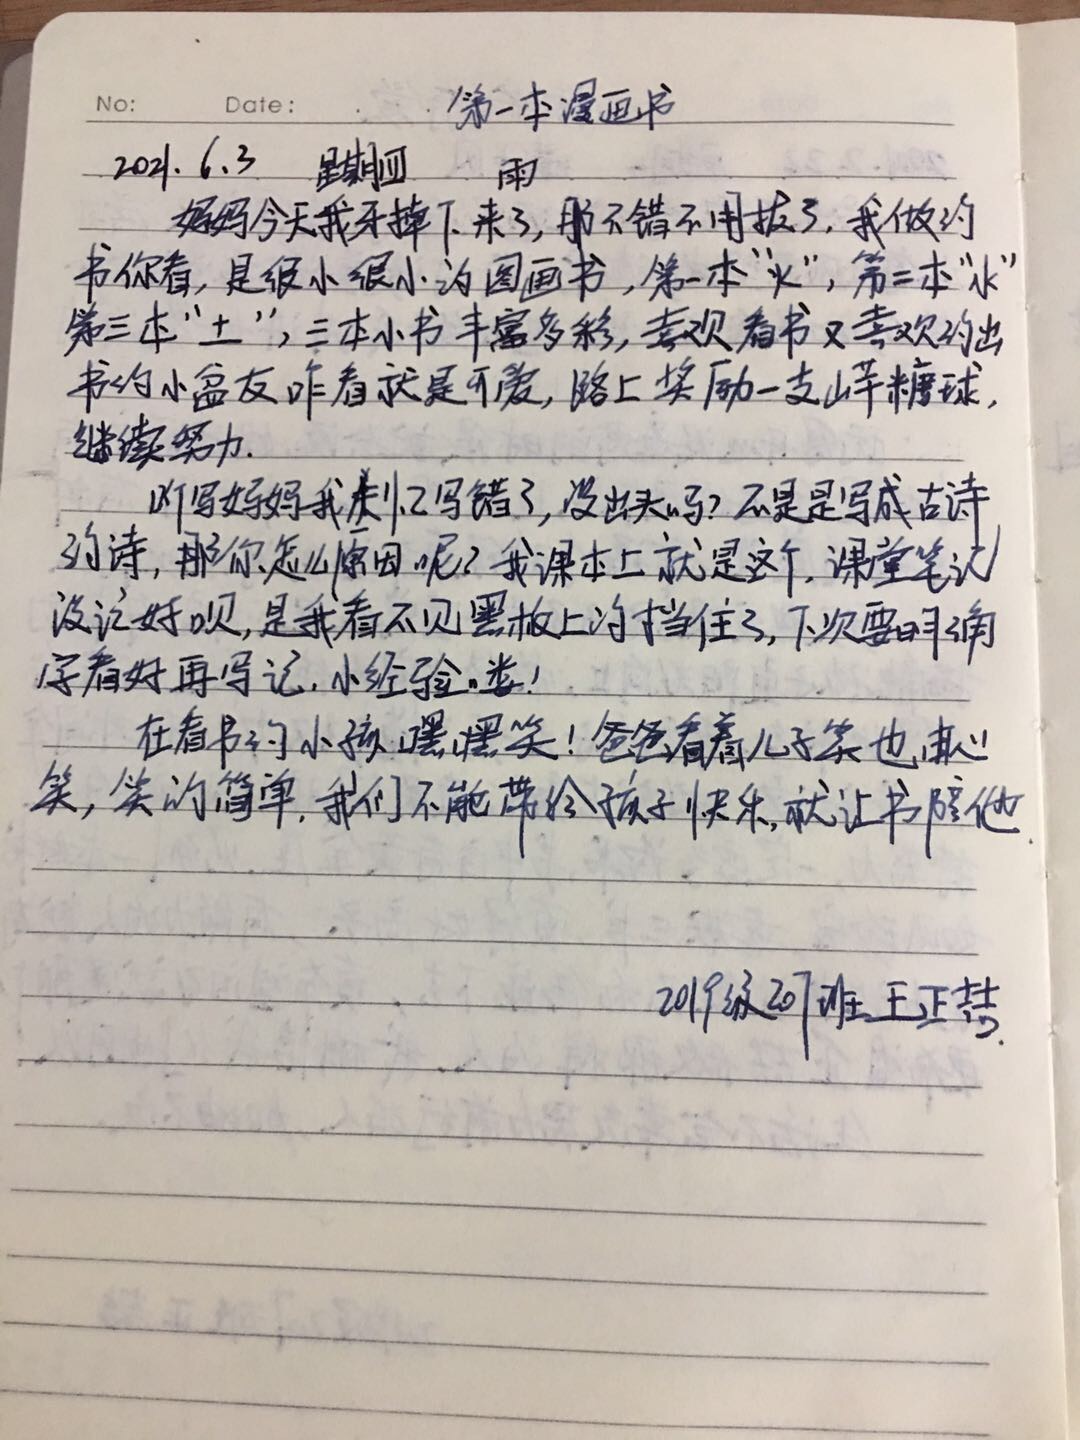 No: Date: 第一本漫画书
2021.6.3 星期四 雨
妈妈今天我牙掉下来了,那不错不用拔了.我做的
书你看,是很小很小的图画书,第一本“火”,第二本“水”
第三本“土”,三本小书丰富多彩,喜欢看书又喜欢的出
书的小盆友咋看就是可爱,路上奖励一支山羊糖球,
继续努力.
听写妈妈我 写错了,没出头吗?不是是写成古诗
的诗,那你怎么原因呢?我课本上就是这个.课堂笔记
没记好呗,是我看不见黑板上的挡住了,下次要明确
字看好再写记.小经验.娄!
在看书的小孩嘿嘿笑!爸爸看着儿子笑也
笑,笑的简单.我们不能带给孩子快乐,就让书陪他.
2019级207班王正喆.